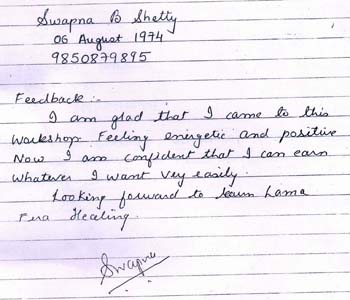 Swapna B Shetty
06 August 1974
9850879895
Feedback :-
I am glad that I came to this
Workshop. Feeling energetic and positive
Now I am confident that I can earn
Whatever I want vey easily.
Looking forward to learn Lama
Fera Healing.
Swapna